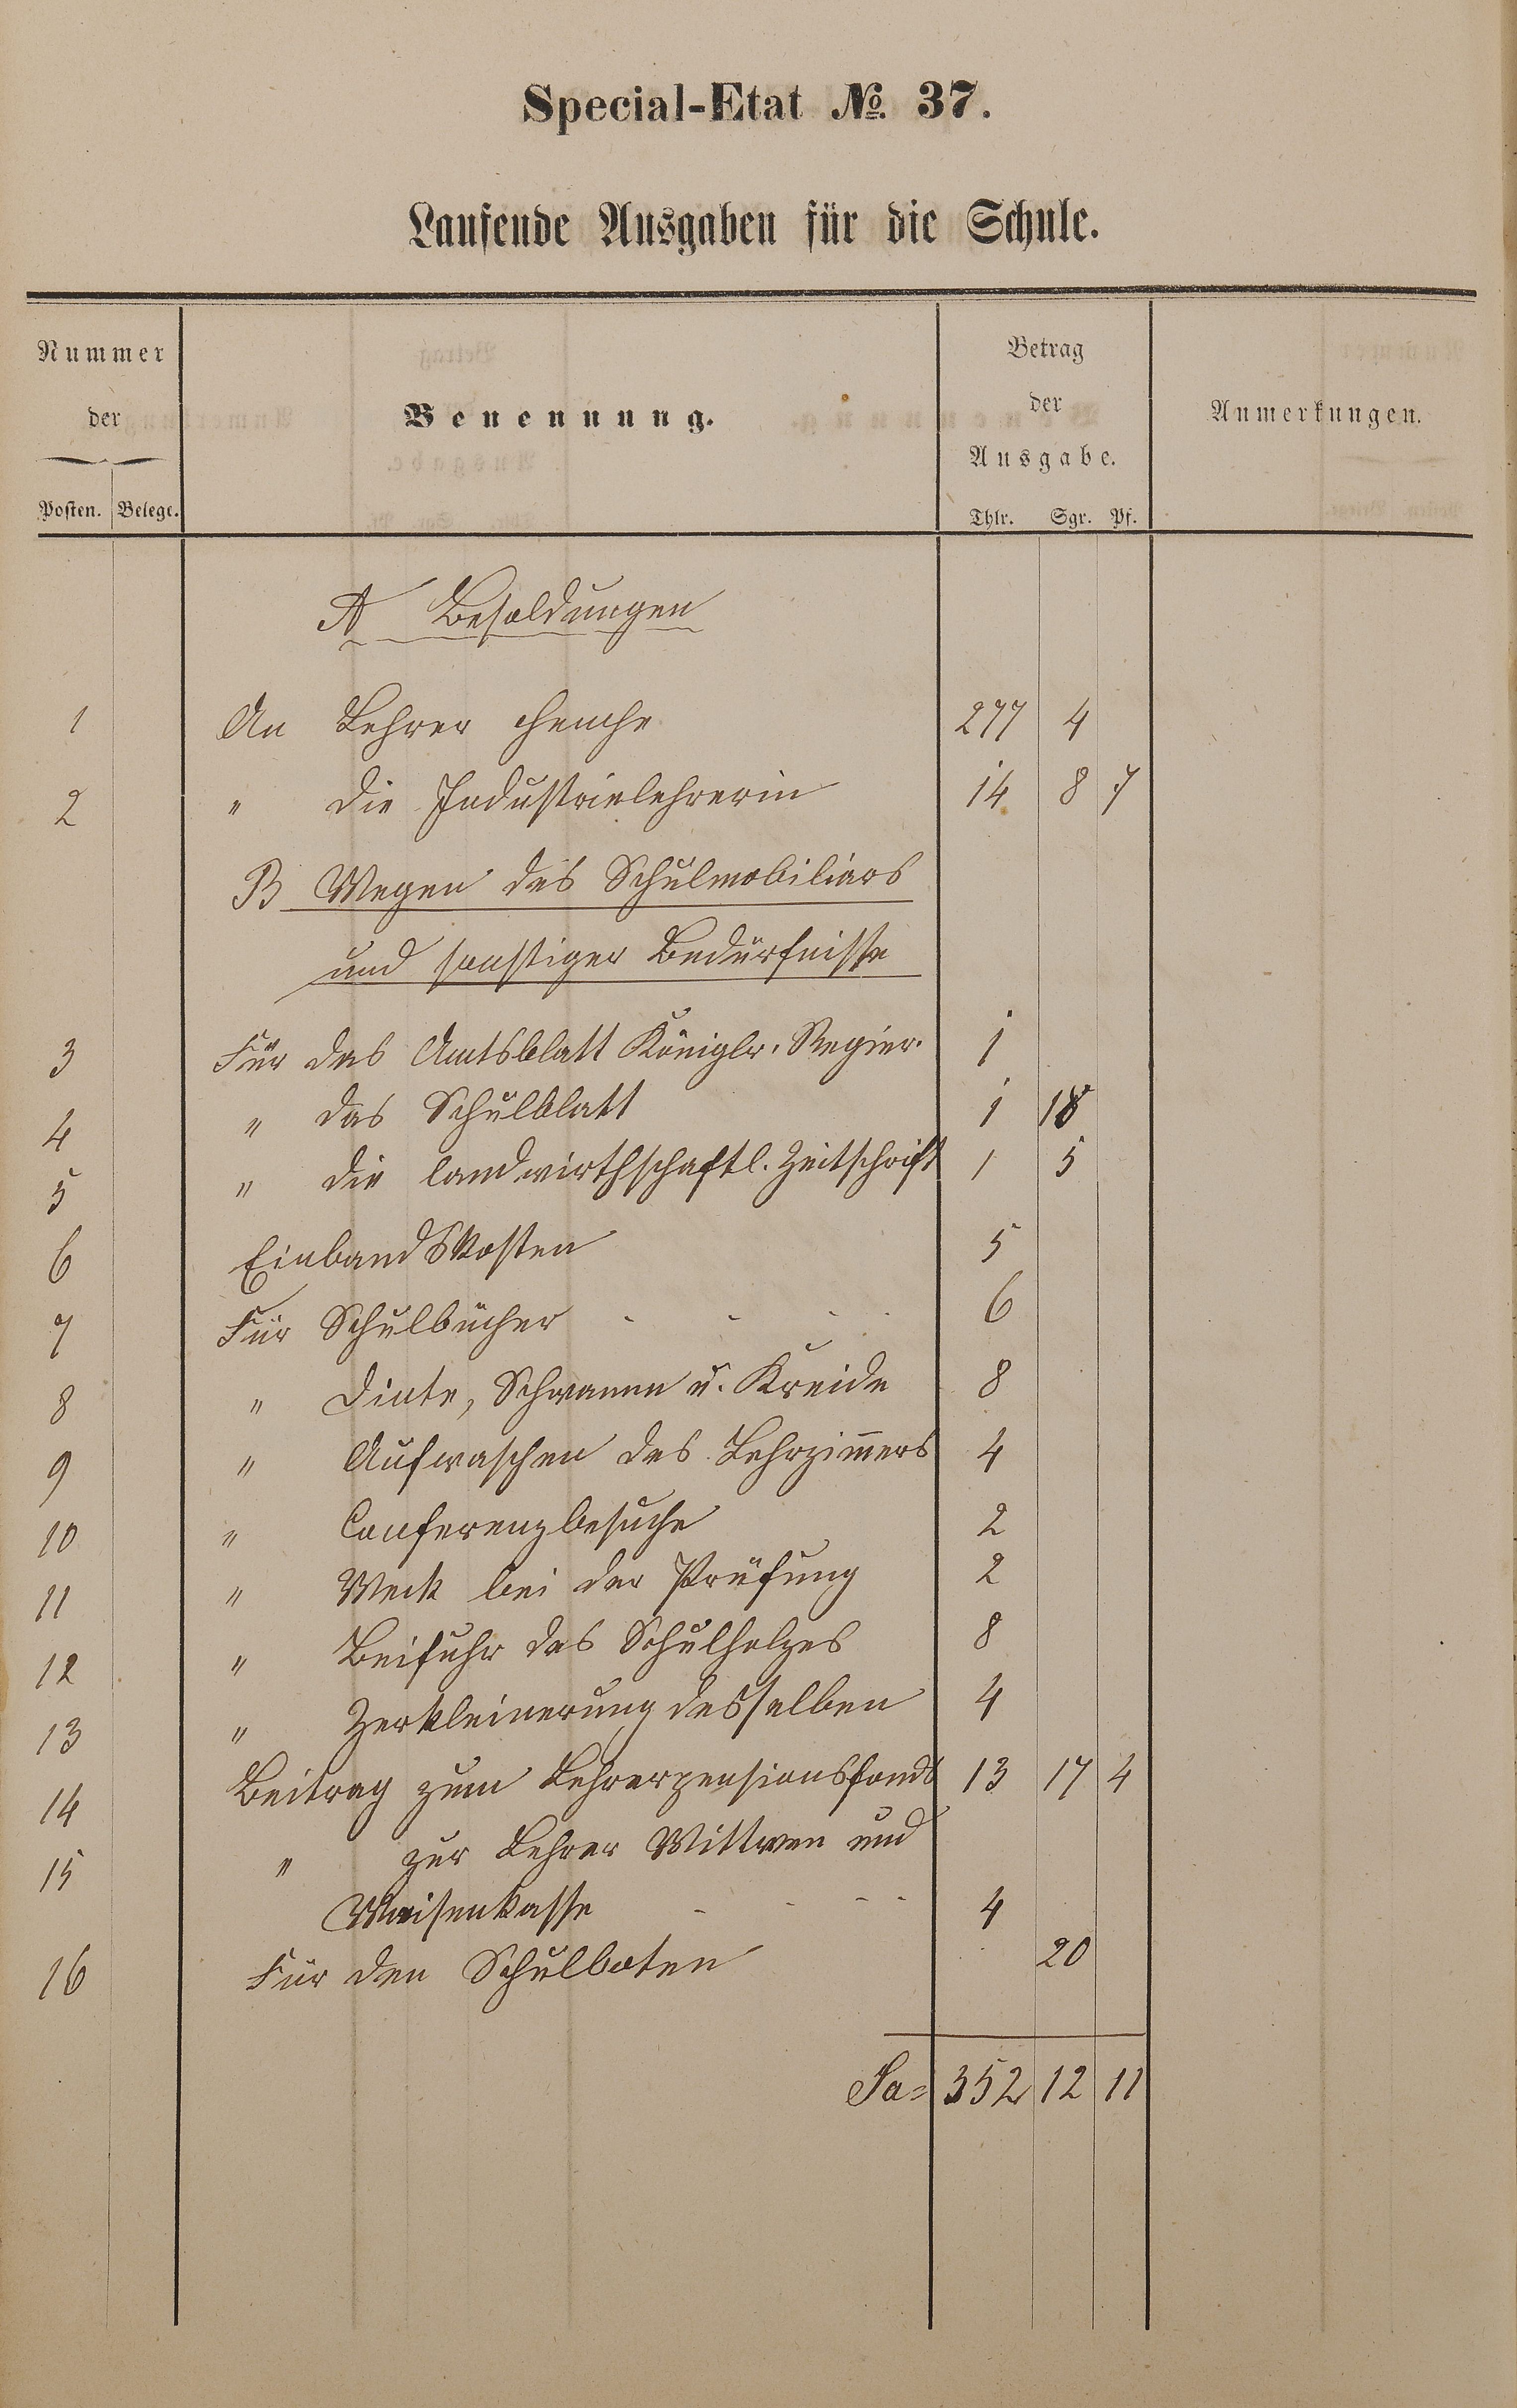 Special-Etat № 37.
Laufende Ausgaben für die Schule.
Nummer
der
Posten. Belege.
Benennung.
Betrag
der
Ausgabe.
Thlr. Sgr. Pf.
Anmerkungen.
A Besoldungen
1 An Lehrer 277 4
2 " die Industrielehrerin 14 8 7
B Wegen des Schulmobiliars
und sonstiger Bedürfnisse
3 Für das Amtsblatt Königlr. Regier. 1
4 " das Schulblatt 1 18
5 " die landwirthschaftl. Zeitschrift 1 5
6 Einbandskosten 5
7 Für Schulbücher - - - - 6
8 " Dinte, Schwamm u. Kreide 8
9 " Aufwaschen des Lehrzimmers 4
10 " Conferenzbesuche 2
11 " Weck bei der Prüfung 2
12 " Beifuhr des Schulholzes 8
13 " Zerkleinerung desselben 4
14 Beitrag zum Lehrerpensionsfonds 13 17 4
15 " zur Lehrer Wittwen und
Waisenkasse - - - - 4
16 Für den Schulboten 20
Sa= 352 12 11